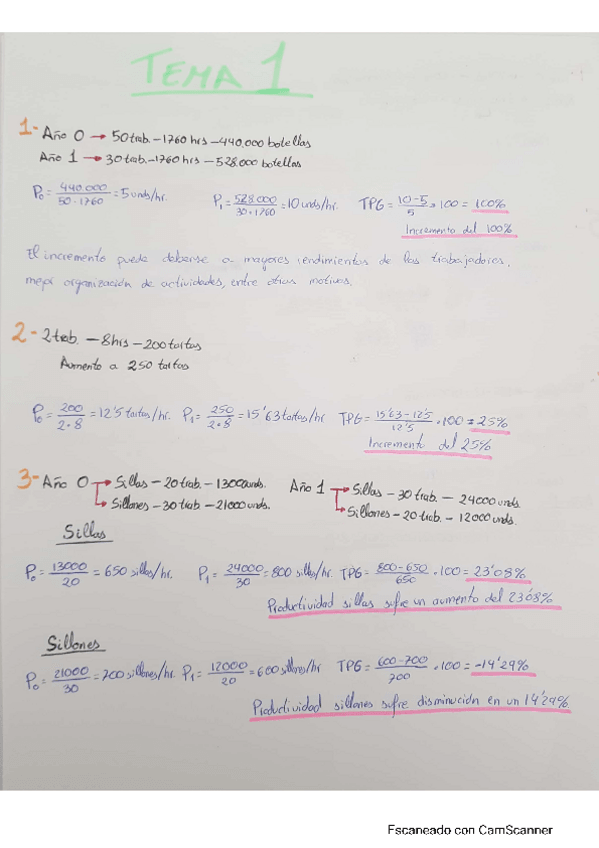 TEMA 1
1- Año 0 → 50 trab. - 1760 hrs - 440.000 botellas
Año 1 → 30 trab. - 1760 hrs - 528.000 botellas
P₀ = 440.000 / 50·1760 = 5 unds/hr. P₁ = 528.000 / 30·1760 = 10 unds/hr. TPG = 10-5 / 5 · 100 = 100%
Incremento del 100%
El incremento puede deberse a mayores rendimientos de los trabajadores,
mejor organización de actividades, entre otros motivos.
2- 2 trab. - 8 hrs - 200 tartas
Aumento a 250 tartas
P₀ = 200 / 2·8 = 12'5 tartas/hr. P₁ = 250 / 2·8 = 15'63 tartas/hr TPG = 15'63 - 12'5 / 12'5 · 100 = 25%
Incremento del 25%
3- Año 0 → Sillas - 20 trab. - 13000 unds. Año 1 → Sillas - 30 trab. - 24000 unds.
→ Sillones - 30 trab - 21000 unds. → Sillones - 20 trab - 12000 unds.
Sillas
P₀ = 13000 / 20 = 650 sillas/hr. P₁ = 24000 / 30 = 800 sillas/hr. TPG = 800-650 / 650 · 100 = 23'08%
Productividad sillas sufre un aumento del 23'08%
Sillones
P₀ = 21000 / 30 = 700 sillones/hr. P₁ = 12000 / 20 = 600 sillones/hr TPG = 600-700 / 700 · 100 = -14'29%
Productividad sillones sufre disminución en un 14'29%
Escaneado con CamScanner